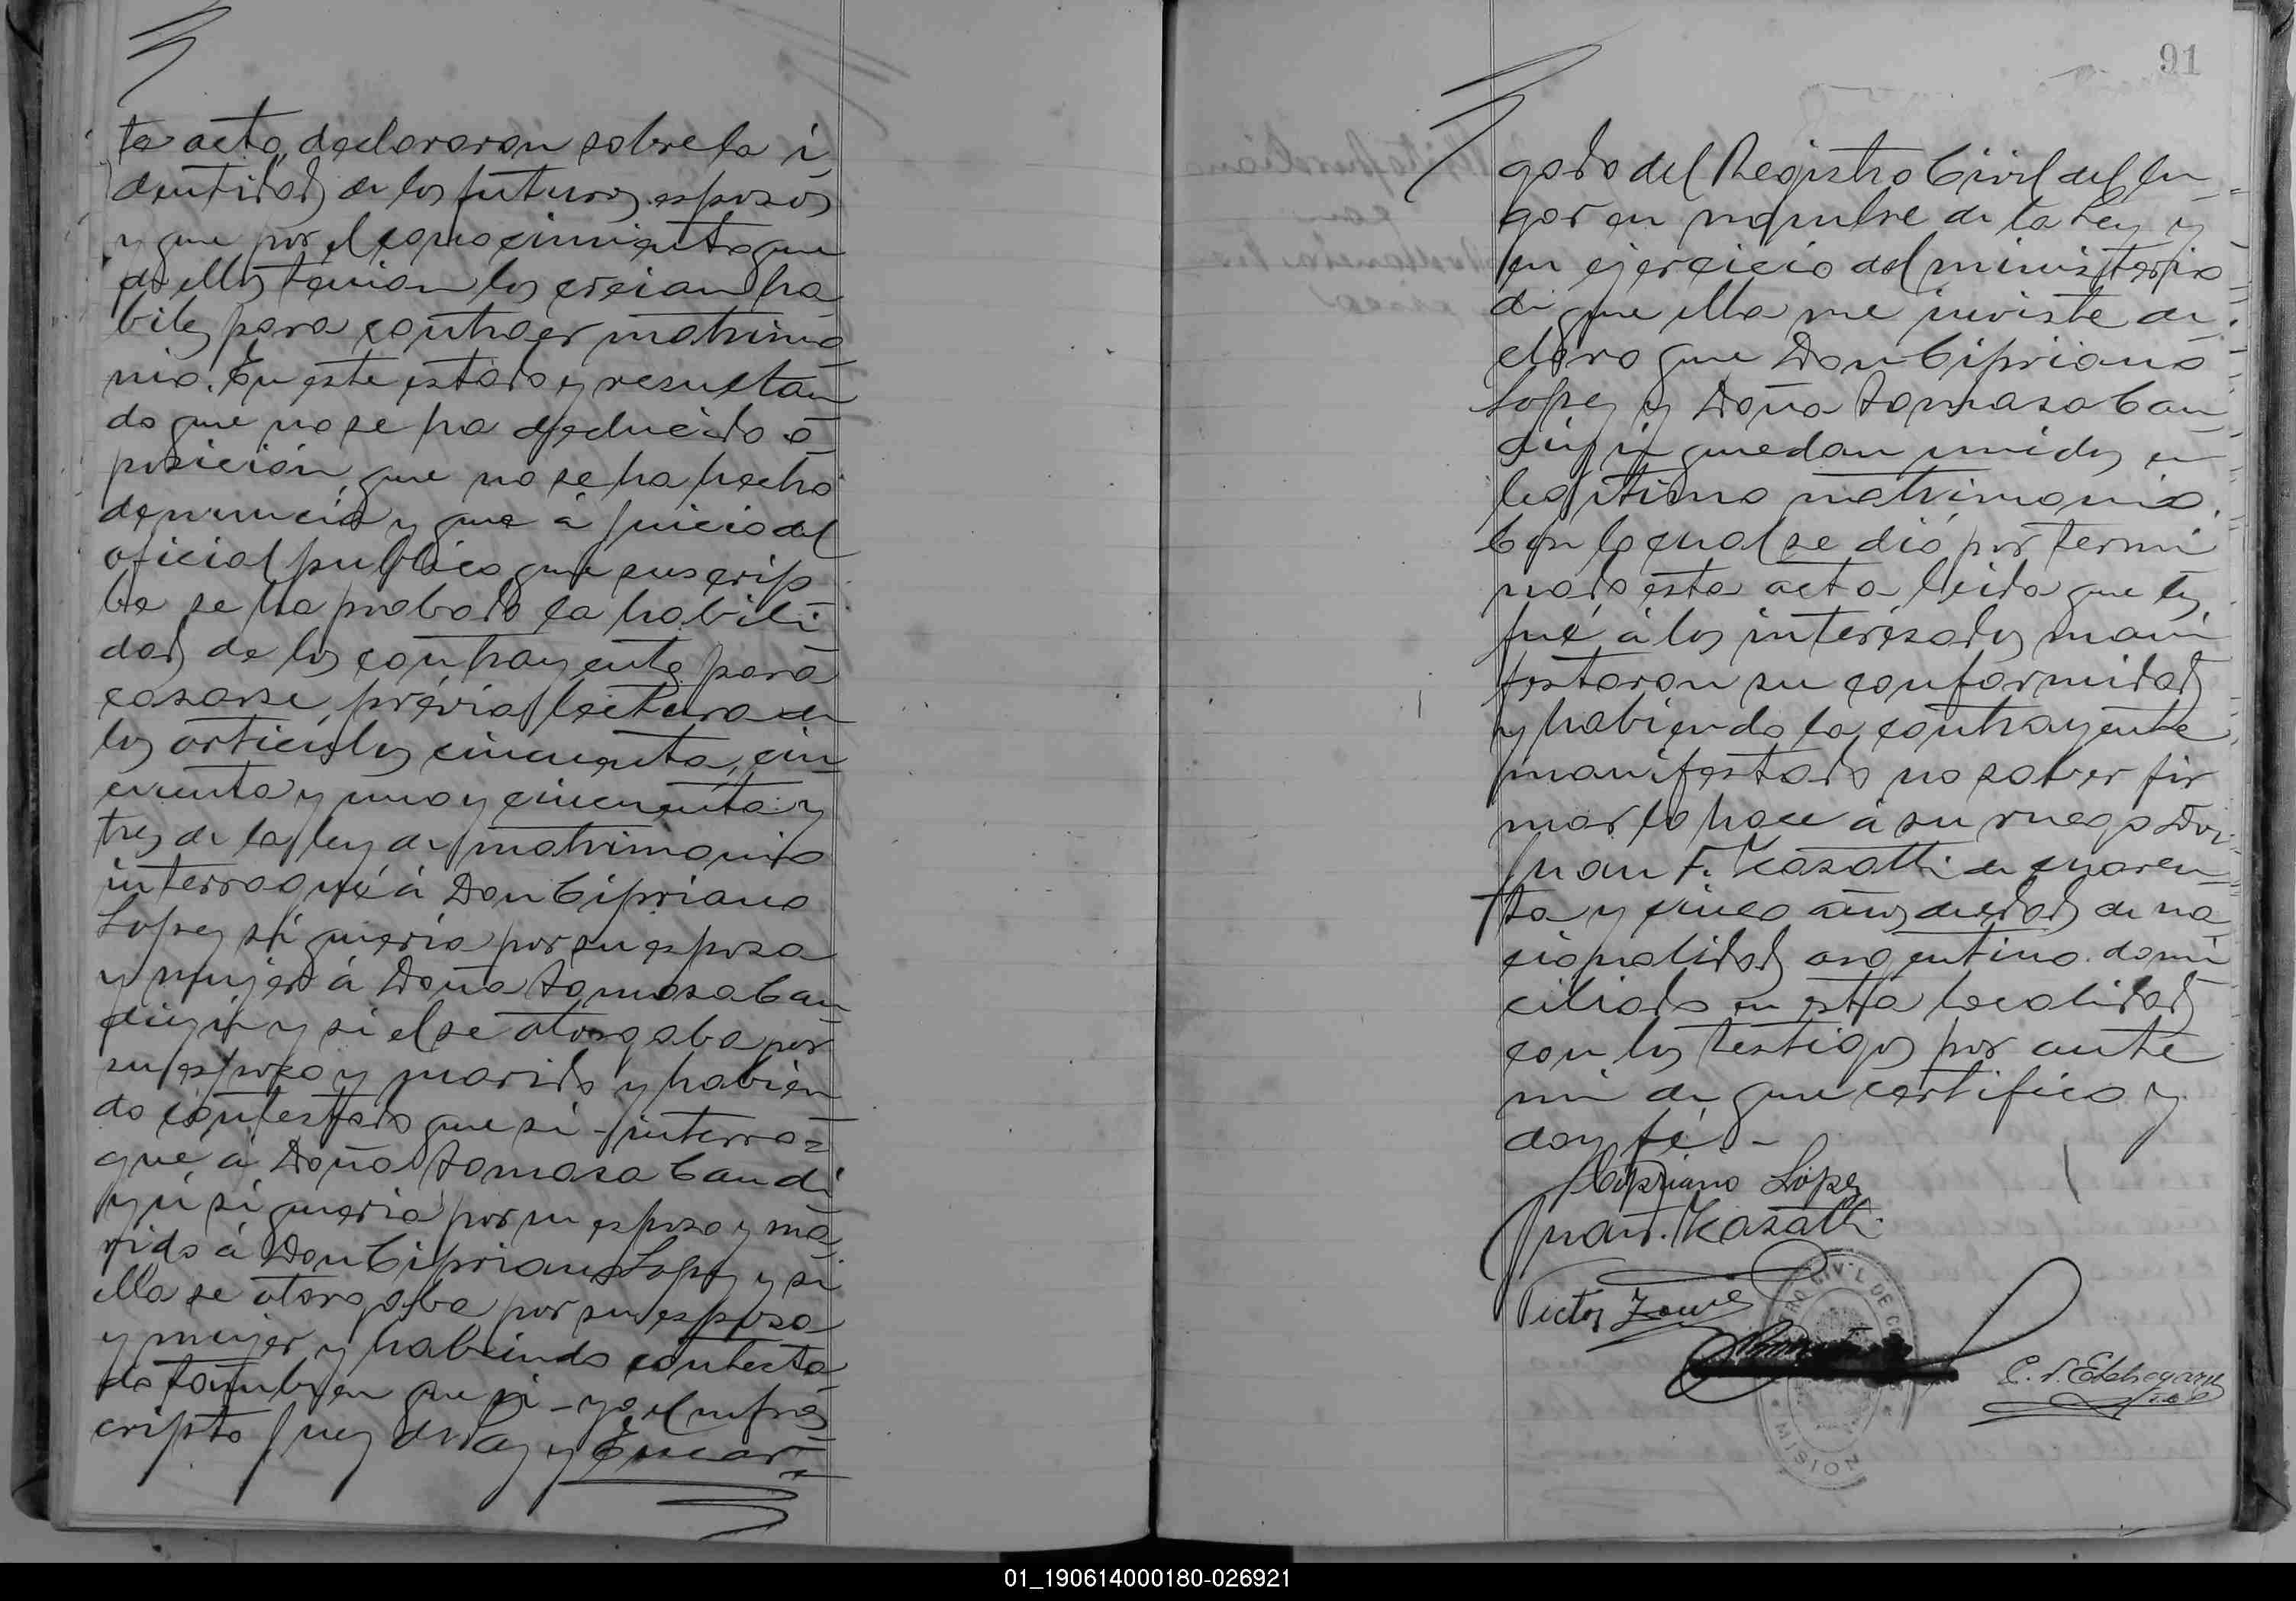 te acto, declararon sobre la i
dentidad de los futuros esposos
y que por el conocimiento que
de ellos tenian los creian ha
biles para contraer matrimo
nio. En este estado y resultan
do que no se ha deducido o
posición, que no se ha hecho
denuncia y que á juicio del
oficial publico que suscrip
be se ha probado la habili
dad de los contrayente para
casarse, prévia lectura de
los articulos cincuenta, cin
cuenta y uno y cincuenta y
tres de la ley de matrimonio
interrogué á Don Cipriano
Lopez si queria por su esposa
y mujer á Doña Tomasa Can
diyú y si el se otorgaba por
su esposo y marido y habien
do contestado que si - interro=
gue á Doña Tomasa Candi
yú si queria por su esposo y ma
rido á Don Cipriano Lopez y si
ella se otorgaba por su esposa
y mujer y habiendo contesta
do tambien que si - yo el infras
cripto Juez de Paz y Encar=
91
gado del Registro Civil del lu
gar en nombre de la Ley y
en ejercicio del ministerio
de que ella me inviste de
claro que Don Cipriano
Lopez y Doña Tomasa Can
diyú quedan unidos en
legitimo matrimonio.
Con lo cual se dió por termi
nado esta acta leida que les
fué á los interesados mani
festaron su conformidad
y habiendo la contrayente
manifestado no saber fir
mar lo hace á su ruego Don
Juan F. Kasatti de cuaren
ta y cinco años de edad de na
cionalidad argentino domi
ciliado en esta localidad
con los testigos por ante
mi de que certifico y
doy fé -
Cipriano López
Juan F. Kasatti
Victor
C. S. Etchegaray
CIVIL DE
MISION
01_190614000180-026921